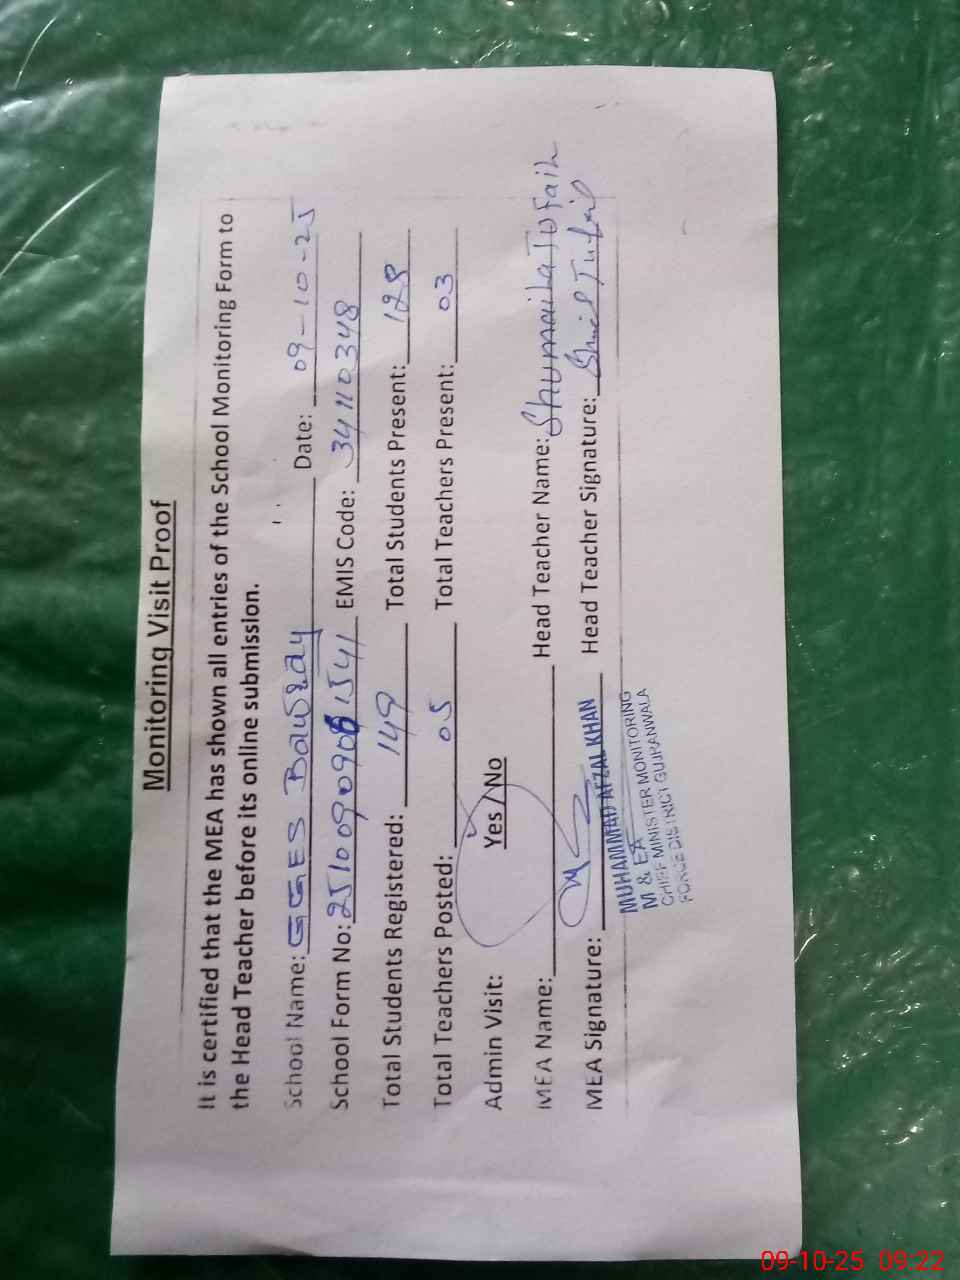 Monitoring Visit Proof
It is certified that the MEA has shown all entries of the School Monitoring Form to
the Head Teacher before its online submission.
School Name: GGES Bawray Date: 09-10-25
School Form No: 25100909061541 EMIS Code: 34110348
Total Students Registered: 149 Total Students Present: 128
Total Teachers Posted: 05 Total Teachers Present: 03
Admin Visit: Yes / No
MEA Name: Head Teacher Name: Shumaila Tufail
MEA Signature: Head Teacher Signature: Tufail
MUHAMMAD AFZAL KHAN
M & EA
CHIEF MINISTER MONITORING
FORCE DISTRICT GUJRANWALA
09-10-25 09:22